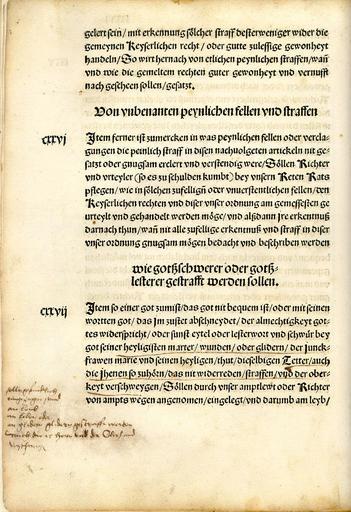 gelert sein / mit erkennung sölcher straff desterweniger wider die
gemeynen Keyserlichen recht / oder gutte zulessige gewonheyt
handeln / So wirt hernach von etlichen peynlichen straffen / wañ
vnd wie die gemelten rechten guter gewonheyt vnd vernufft
nach gescheen sollen / gesatzt.
Von vnbenanten peynlichen fellen vnd straffen
cxxvj
Item ferner ist zumercken in was peynlichen fellen oder vercla-
gungen die peinlich straff in disen nachuolgeten artickeln nit ge-
satzt oder gnugsam erclert vnd verstendig were / Söllen Richter
vnd vrteyler (so es zu schulden kumbt) bey vnsern Reten Rats
pflegen / wie in sölchen zufelligñ oder vnuerstentlichen fellen / den
Keyserlichen rechten vnd diser vnser ordnung am gemeßesten ge
urteylt vnd gehandelt werden möge / vnd alßdann Jre erkentnuß
darnach thun / wañ nit alle zufellige erkentnuß vnd straff in diser
vnser ordnung gnugsam mögen bedacht vnd beschriben werden
wie gotßschwerer oder gotß-
lesterer gestrafft werden sollen.
cxxvij
Item so einer got zumist / das got nit bequem ist / oder mit seinen
wortten got / das Jm zustet abschneydet / der almechtigkeyt got-
tes widerspricht / oder sunst eytel oder lesterwort vnd schwür bey
got seiner heyligisten marter / wunden / oder glidern / der junck-
frawen marie vnd seinen heyligen / thut / dieselbigen Tetter / auch
die Jhenen so zuhörn / das nit widerreden / straffen / vnd der ober-
keyt verschweygen / Söllen durch vnser amptlewt oder Richter
von ampts wegen angenomen / eingelegt / vnd darumb am leyb /